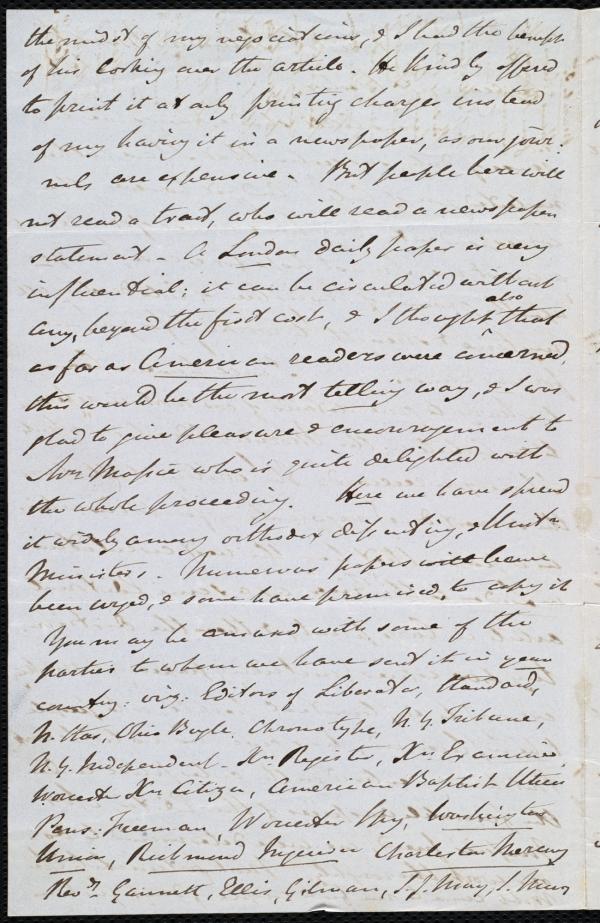 the midst of my negociations, & I had the benefit
of his looking over the article. He kindly offered
to print it at only printing charges instead
of my having it in a newspaper, as our jour-
nals are expensive. But people here will
not read a tract, who will read a newspaper
statement. A London daily paper is very
influential; it can be circulated without
any, beyond the first cost, & I thought also that
as far as American readers were concerned,
this would be the most telling way, & I was
glad to give pleasure & encouragement to
Mr Massie who is quite delighted with
the whole proceeding. Here we have spread
it widely among orthodox dissenting, & Unitn
Ministers. Numerous papers have
been urged, & some have promised, to copy it
You may be amused with some of the
parties to whom we have sent it in your
country: viz: Editors of Liberator, Standard,
N. Star, Ohio Bugle, Chronotype, N.Y. Tribune,
N.Y. Independent - Xn Register, Xn Examiner,
Worcester Xn Citizen, American Baptist Utica
Penn: Freeman, Worcester Spy, Washington
Union, Richmond Inquirer Charleston Mercury
Revds. Gannett, Ellis, Gilman, S. J. May, S. May